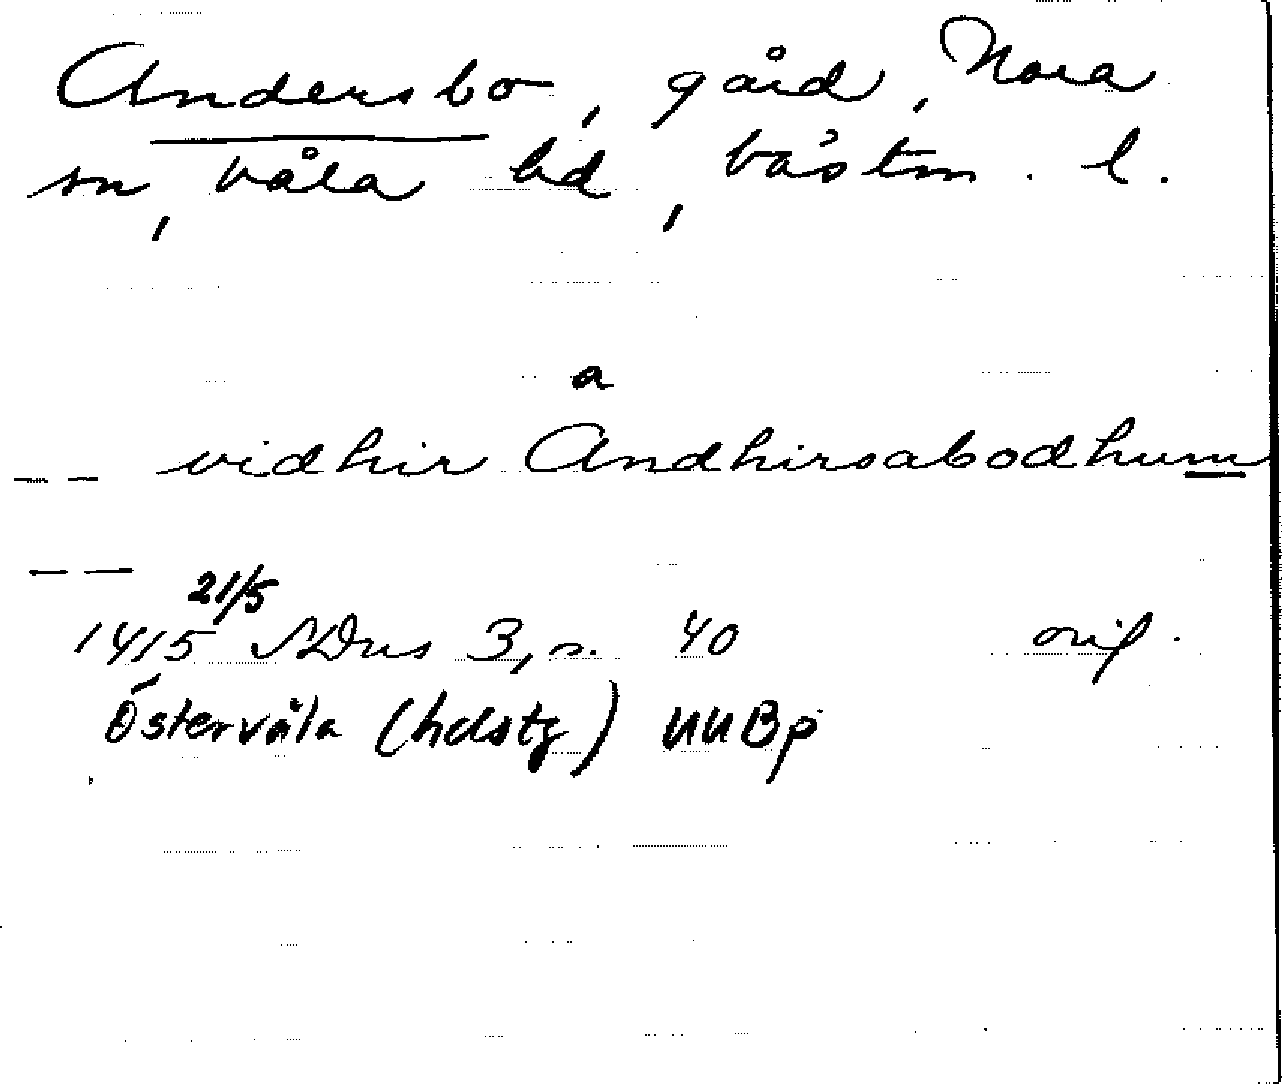 Andersbo, gård, Nora
sn, Våla hd, Västm. l.
a
-- vidhir Andhirsabodhum
--
21/5
1415 SDns 3, s. 40 orig.
Östervåla (hdstg) UUB p